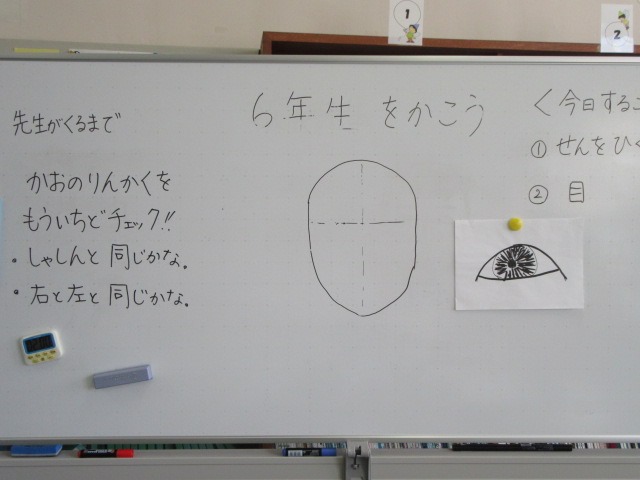 1
2
6年生をかこう
先生がくるまで
かおのりんかくを
もういちどチェック!!
・しゃしんと同じかな。
・右と左と同じかな。
く今日するこ
①せんをひく
②目